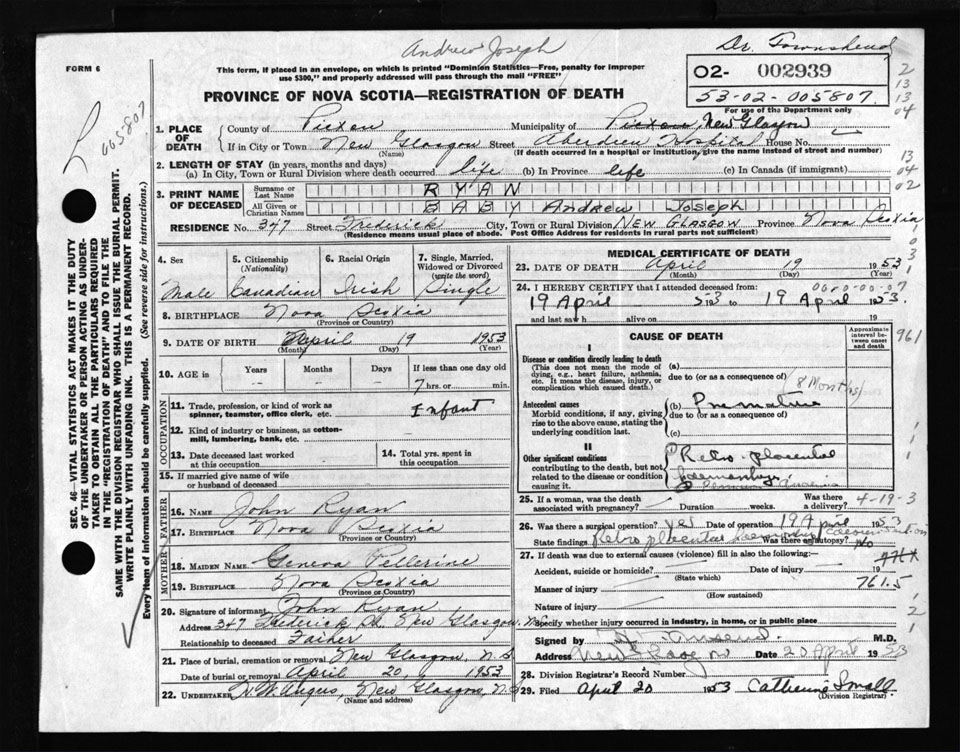 Andrew Joseph
Dr. Townshend
FORM 6
This form, if placed in an envelope, on which is printed "Dominion Statistics—Free, penalty for improper
use $300," and properly addressed will pass through the mail "FREE"
02- 002939
53-02-005807.
For use of the Department only
PROVINCE OF NOVA SCOTIA—REGISTRATION OF DEATH
005807
1. PLACE OF DEATH
County of Pictou Municipality of Pictou, New Glasgow
If in City or Town New Glasgow Street Aberdeen Hospital House No.
(Name) (If death occurred in a hospital or institution, give the name instead of street and number)
2. LENGTH OF STAY (in years, months and days)
(a) In City, Town or Rural Division where death occurred life (b) In Province life (c) In Canada (if immigrant)
3. PRINT NAME OF DECEASED
Surname or Last Name RYAN
All Given or Christian Names BABY Andrew Joseph
RESIDENCE No. 347 Street Frederick City, Town or Rural Division NEW GLASGOW Province Nova Scotia
(Residence means usual place of abode. Post Office Address for residents in rural parts not sufficient)
SEC. 46 VITAL STATISTICS ACT MAKES IT THE DUTY
OF THE UNDERTAKER OR PERSON ACTING AS UNDER-
TAKER TO OBTAIN ALL THE PARTICULARS REQUIRED
IN THE "REGISTRATION OF DEATH" AND TO FILE THE
SAME WITH THE DIVISION REGISTRAR WHO SHALL ISSUE THE BURIAL PERMIT.
WRITE PLAINLY WITH UNFADING INK. THIS IS A PERMANENT RECORD.
Every item of information should be carefully supplied. (See reverse side for instructions.)
4. Sex 5. Citizenship (Nationality) 6. Racial Origin 7. Single, Married, Widowed or Divorced (write the word)
Male Canadian Irish Single
8. BIRTHPLACE Nova Scotia
(Province or Country)
9. DATE OF BIRTH April 19 1953
(Month) (Day) (Year)
10. AGE in Years Months Days If less than one day old
7 hrs. or min.
OCCUPATION
11. Trade, profession, or kind of work as
spinner, teamster, office clerk, etc. Infant
12. Kind of industry or business, as cotton-
mill, lumbering, bank, etc.
13. Date deceased last worked
at this occupation
14. Total yrs. spent in
this occupation
15. If married give name of wife
or husband of deceased
FATHER
16. Name John Ryan
17. Birthplace Nova Scotia
(Province or Country)
MOTHER
18. MAIDEN NAME Geneva Pellerine
19. BIRTHPLACE Nova Scotia
(Province or Country)
20. Signature of informant John Ryan
Address 347 Frederick St. New Glasgow, N.S.
Relationship to deceased Father
21. Place of burial, cremation or removal New Glasgow, N.S.
Date of burial or removal April 20, 1953
22. UNDERTAKER New Glasgow, N.S.
(Name and address)
MEDICAL CERTIFICATE OF DEATH
23. DATE OF DEATH April 19 1953
(Month) (Day) (Year)
24. I HEREBY CERTIFY that I attended deceased from:
19 April 53 to 19 April 1953.
and last saw h alive on 19
CAUSE OF DEATH
Approximate interval between onset and death
961
I
Disease or condition directly leading to death
(This does not mean the mode of
dying, e.g., heart failure, asthenia,
etc. It means the disease, injury, or
complication which caused death.)
(a)
due to (or as a consequence of) 8 Months
Antecedent causes
Morbid conditions, if any, giving
rise to the above cause, stating the
underlying condition last.
(b) Premature
due to (or as a consequence of)
(c)
II
Other significant conditions
contributing to the death, but not
related to the disease or condition
causing it.
Retro-placental
haemorrhage
25. If a woman, was the death
associated with pregnancy? Duration weeks. Was there a delivery?
4-19-3
26. Was there a surgical operation? yes Date of operation 19 April 1953
State findings Retro placental haemorrhage Was there an autopsy? No
27. If death was due to external causes (violence) fill in also the following:—
Accident, suicide or homicide? Date of injury 19
(State which)
Manner of injury 761.5
(How sustained)
Nature of injury
Specify whether injury occurred in industry, in home, or in public place
Signed by M.D.
Address New Glasgow Date 20 April 1953
28. Division Registrar's Record Number
29. Filed April 20 1953 Catherine Small
(Division Registrar)